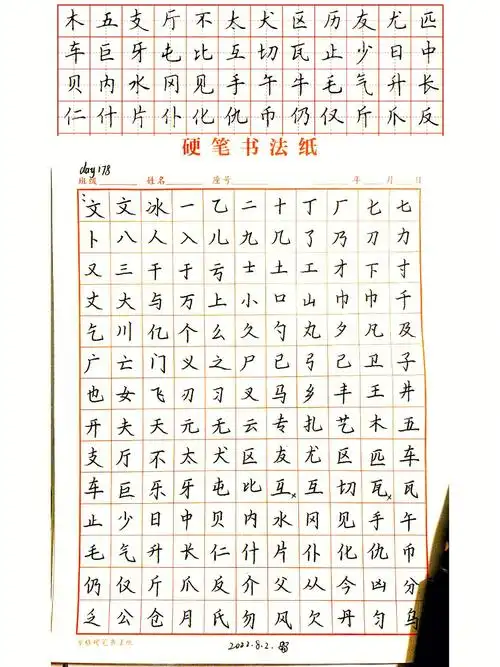 木五支厅不太犬区历友尤匹
车巨牙屯比互切瓦止少日中
贝内水冈见手午牛毛气升长
仁什片仆化仇币仍仅斤爪反
硬笔书法纸
day178
班级 姓名 座号 年 月 日
文文冰一乙二十丁厂七七
卜八人入儿九几了乃刀力
又三干于亏士土工才下寸
丈大与万上小口山巾巾千
乞川亿个么久勺丸夕凡及
广亡门义之尸已弓己卫子
也女飞刃习叉马乡丰王井
开夫天元无云专扎艺木五
支厅不太犬区友尤区匹车
车巨乐牙屯比互互切瓦瓦
止少日中贝内水冈见手午
毛气升长仁什片仆化仇币
仍仅斤爪反介父从今凶分
乏公仓月氏勿风欠丹匀乌
2022.8.2.